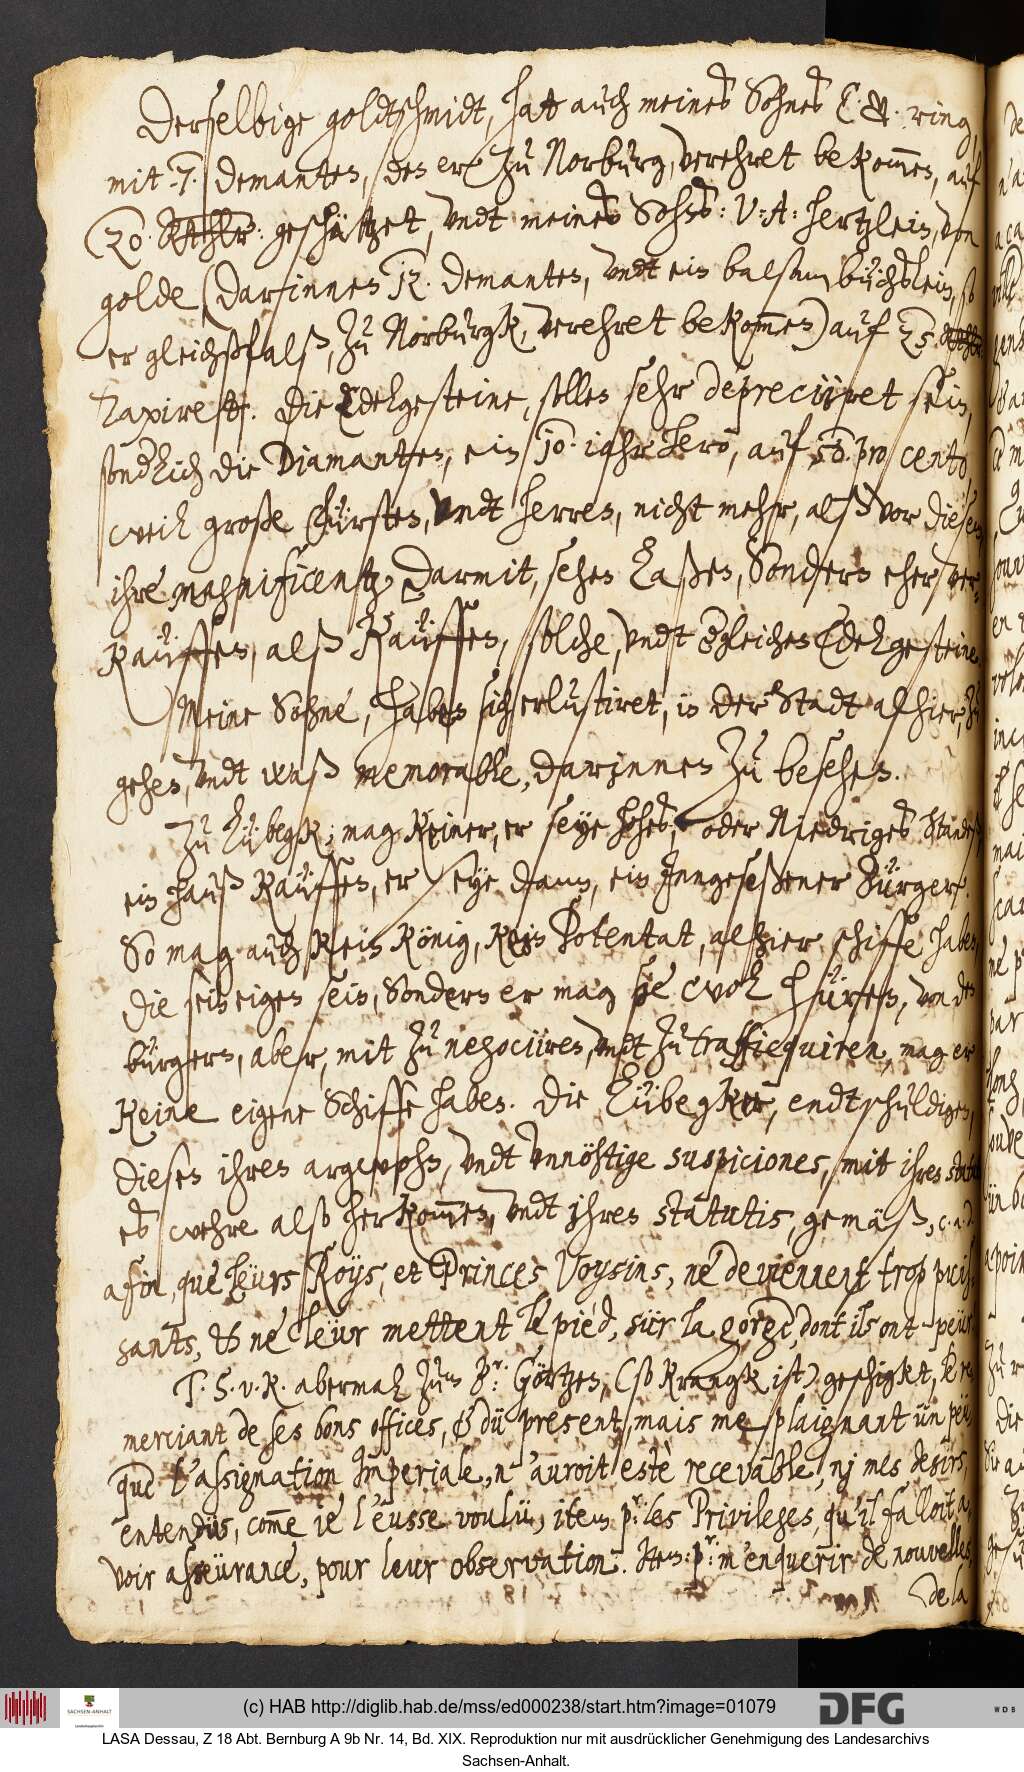 Derselbige goldtschmidt, hat auch meines Sohnes C. A. ring,
mit .7. demanten, den er zu Norburg, verehret bekom̅en, auf
20. Rthlr: geschätzet, undt meines Sohns: V: A: hertzlein, von
golde (darinnen 12. demanten, undt ein balsam büchslein, so
er gleichßfalß, zu Norburgk, verehret bekom̅en) auf 25
taxiret. Die Edelgesteine, sollen sehr depreciiret sein,
sonderlich die Diamanten, ein 10. iahr hero, auf 50. pro cento,
weil große Fürsten, undt herren, nicht mehr, alß vor diesem,
ihre magnificentz darmit, sehen laßen, Sondern eher ver-
kauffen, alß kauffen, solche, undt dergleichen Edelgesteine.
Meine Söhne, haben sich erlustiret, in der Stadt alhier, zu
gehen, undt waß memorable, darinnen zu besehen.
Zu Lübegk, mag keiner, er seye hohes, oder Niedriges Standes,
ein hauß kauffen, er seye dann, ein Inngeseßener Bürger.
So mag auch kein König, kein Potentat, alhier schiffe haben,
die sein eigen sein, Sondern er mag sie wol hüren, von den
bürgern, aber, mit zu negociiren, undt zu traffiequiren, mag er
keine eigene Schiffe haben. Die Lübegker, endtschuldigen,
diesen ihren argwohn, undt unnöhtige suspiciones, mit ihrem statu
es wehre also herkom̅en, undt ihren statutis, gemäß, c. a. d.
afin, que leurs Roys, et Princes Voysins, ne deviennent trop puis-
sants, & ne leur mettent le pied, sur la gorge, dont ils ont peur
J'. S. v. K. abermal zum Pr: Görtzen, (so krangk ist) geschigkt, le re-
merciant de ses bons offices, & du present, mais me plaignant un peu,
que l'assignation Imperiale, n'auroit estè recevable, nj mes desirs,
entendus, com̅e je l'eusse voulu, item pr: les Privileges, qu'il falloit a-
voir asseurance, pour leur observation. Item: pr: m'enquerir de nouvelles,
de la
(c) HAB http://diglib.hab.de/mss/ed000238/start.htm?image=01079
DFG
WDB
SACHSEN-ANHALT
LASA Dessau, Z 18 Abt. Bernburg A 9b Nr. 14, Bd. XIX. Reproduktion nur mit ausdrücklicher Genehmigung des Landesarchivs
Sachsen-Anhalt.